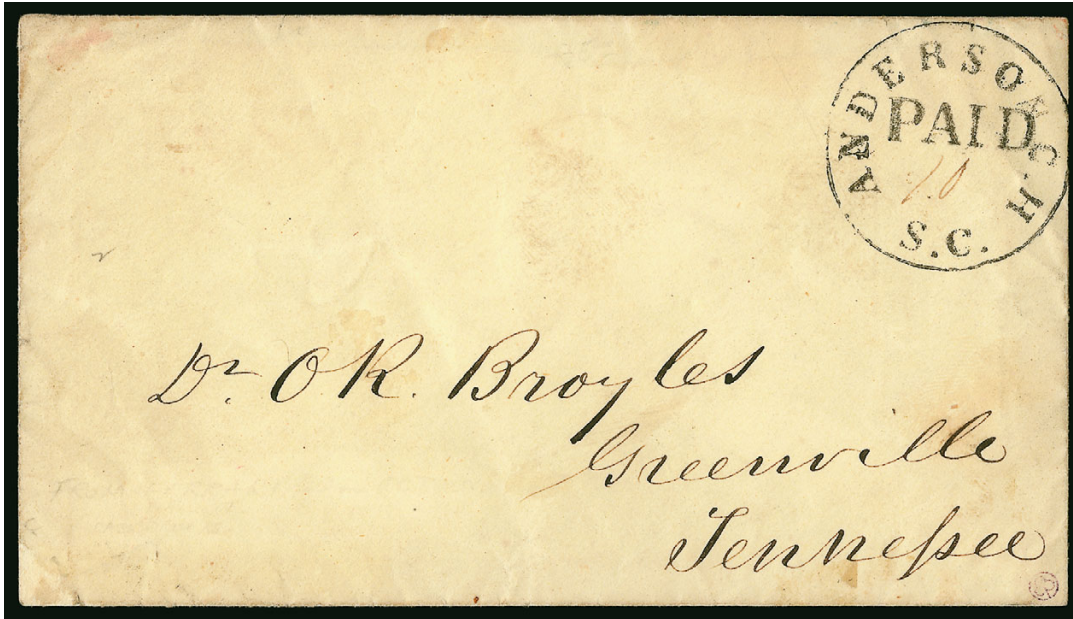 ANDERSON C.H.
S.C.
PAID
10
Dr. O R. Broyles
Greenville
Tenneſsee